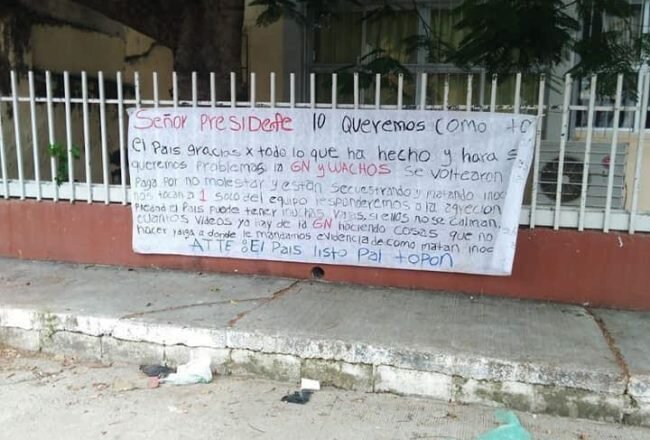 Señor PreSIDeṉte lo Queremos como to
el País gracias x todo lo que ha hecho y hara s
queremos problemas la GN y WACHOS se voltearon
Paga por no molestar y estan secuestrando y matando inoc
nos tocan a 1 solo del equipo responderemos a la agrecion
el País Puede tener muchas vajas si ellos no se calman,
cuantos videos ya hay de la GN haciendo cosas que no
hacer y diga a donde le mandamos evidencia de como matan inoc
ATTE: El País listo Pal topon